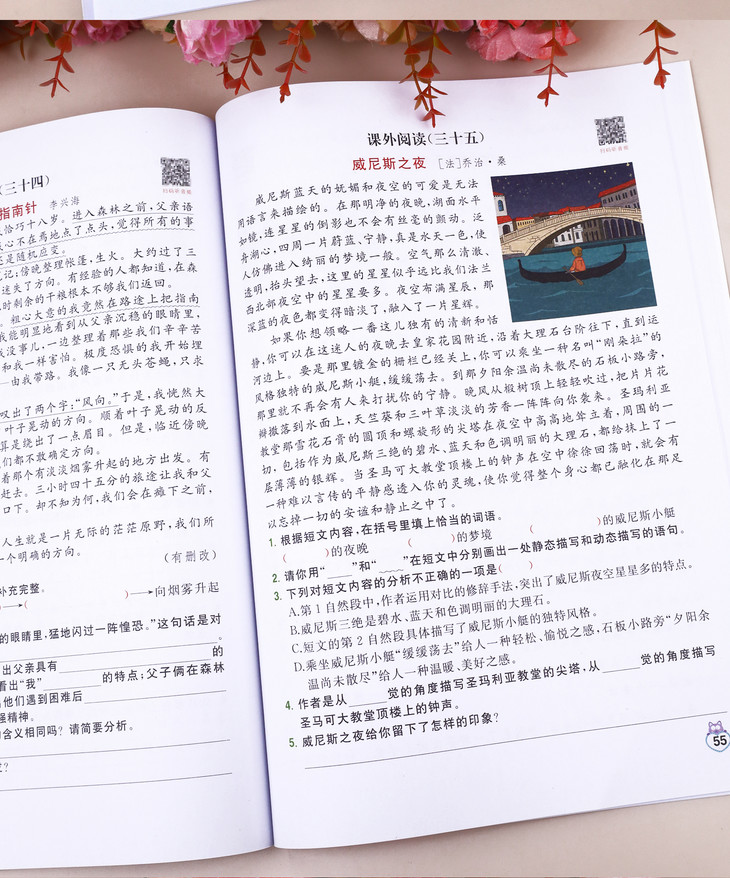 (三十四)
扫码听音频
指南针 李兴海
恰巧十八岁。进入森林之前,父亲语
心不在焉地点了点头,觉得所有的事
是随机应变。
记:傍晚整理帐篷,生火。大约过了三
迷失了方向。有经验的人都知道,在森
时剩余的干粮根本不够我们返回。
粗心大意的我竟然在路途上把指南
我能明显地看到从父亲沉稳的眼睛里,
我没事儿,一边整理着那些我们辛辛苦
和我一样害怕。极度恐惧的我开始埋
——由我带路。我像一只无头苍蝇,只求
叹出了两个字:“风向。”于是,我恍然大
叶子晃动的方向。顺着叶子晃动的反
算是绕出了一点眉目。但是,临近傍晚
们都不敢确定方向。
着那个有淡淡烟雾升起的地方出发。有
赶去。三小时四十五分的旅途让我和父
口下。却不知为何,我们会在瘫下之前,
人生就是一片无际的茫茫原野,我们所
个明确的方向。
(有删改)
补充完整。
→( )→向烟雾升起
的眼睛里,猛地闪过一阵惶恐。”这句话是对
。
出父亲具有 的
看出“我” 的特点;父子俩在森林
他们遇到困难后
强精神。
含义相同吗?请简要分析。
?
课外阅读(三十五)
扫码听音频
威尼斯之夜 [法]乔治·桑
威尼斯蓝天的妩媚和夜空的可爱是无法
用语言来描绘的。在那明净的夜晚,湖面水平
如镜,连星星的倒影也不会有丝毫的颤动。泛
舟湖心,四周一片蔚蓝、宁静,真是水天一色,使
人仿佛进入绮丽的梦境一般。空气那么清澈、
透明,抬头望去,这里的星星似乎远比我们法兰
西北部夜空中的星星要多。夜空布满星辰,那
深蓝的夜色都变得暗淡了,融入了一片星辉。
如果你想领略一番这儿独有的清新和恬
静,你可以在这迷人的夜晚去皇家花园附近,沿着大理石台阶往下,直到运
河边上。要是那里镀金的栅栏已经关上,你可以乘坐一种名叫“刚朵拉”的
风格独特的威尼斯小艇,缓缓荡去。到那夕阳余温尚未散尽的石板小路旁,
那里就不再会有人来打扰你的宁静。晚风从椴树顶上轻轻吹过,把片片花
瓣撒落到水面上,天竺葵和三叶草淡淡的芳香一阵阵向你袭来。圣玛利亚
教堂那雪花石膏的圆顶和螺旋形的尖塔在夜空中高高地耸立着,周围的一
切,包括作为威尼斯三绝的碧水、蓝天和色调明丽的大理石,都给抹上了一
层薄薄的银辉。当圣马可大教堂顶楼上的钟声在空中徐徐回荡时,就会有
一种难以言传的平静感透入你的灵魂,使你觉得整个身心都已融化在那足
以忘掉一切的安谧和静止之中了。
1. 根据短文内容,在括号里填上恰当的词语。
( )的夜晚 ( )的梦境 ( )的威尼斯小艇
2. 请你用“____”和“﹏﹏”在短文中分别画出一处静态描写和动态描写的语句。
3. 下列对短文内容的分析不正确的一项是( )
A.第1自然段中,作者运用对比的修辞手法,突出了威尼斯夜空星星多的特点。
B.威尼斯三绝是碧水、蓝天和色调明丽的大理石。
C.短文的第2自然段具体描写了威尼斯小艇的独特风格。
D.乘坐威尼斯小艇“缓缓荡去”给人一种轻松、愉悦之感,石板小路旁“夕阳余
温尚未散尽”给人一种温暖、美好之感。
4. 作者是从______觉的角度描写圣玛利亚教堂的尖塔,从______觉的角度描写
圣马可大教堂顶楼上的钟声。
5. 威尼斯之夜给你留下了怎样的印象?
55